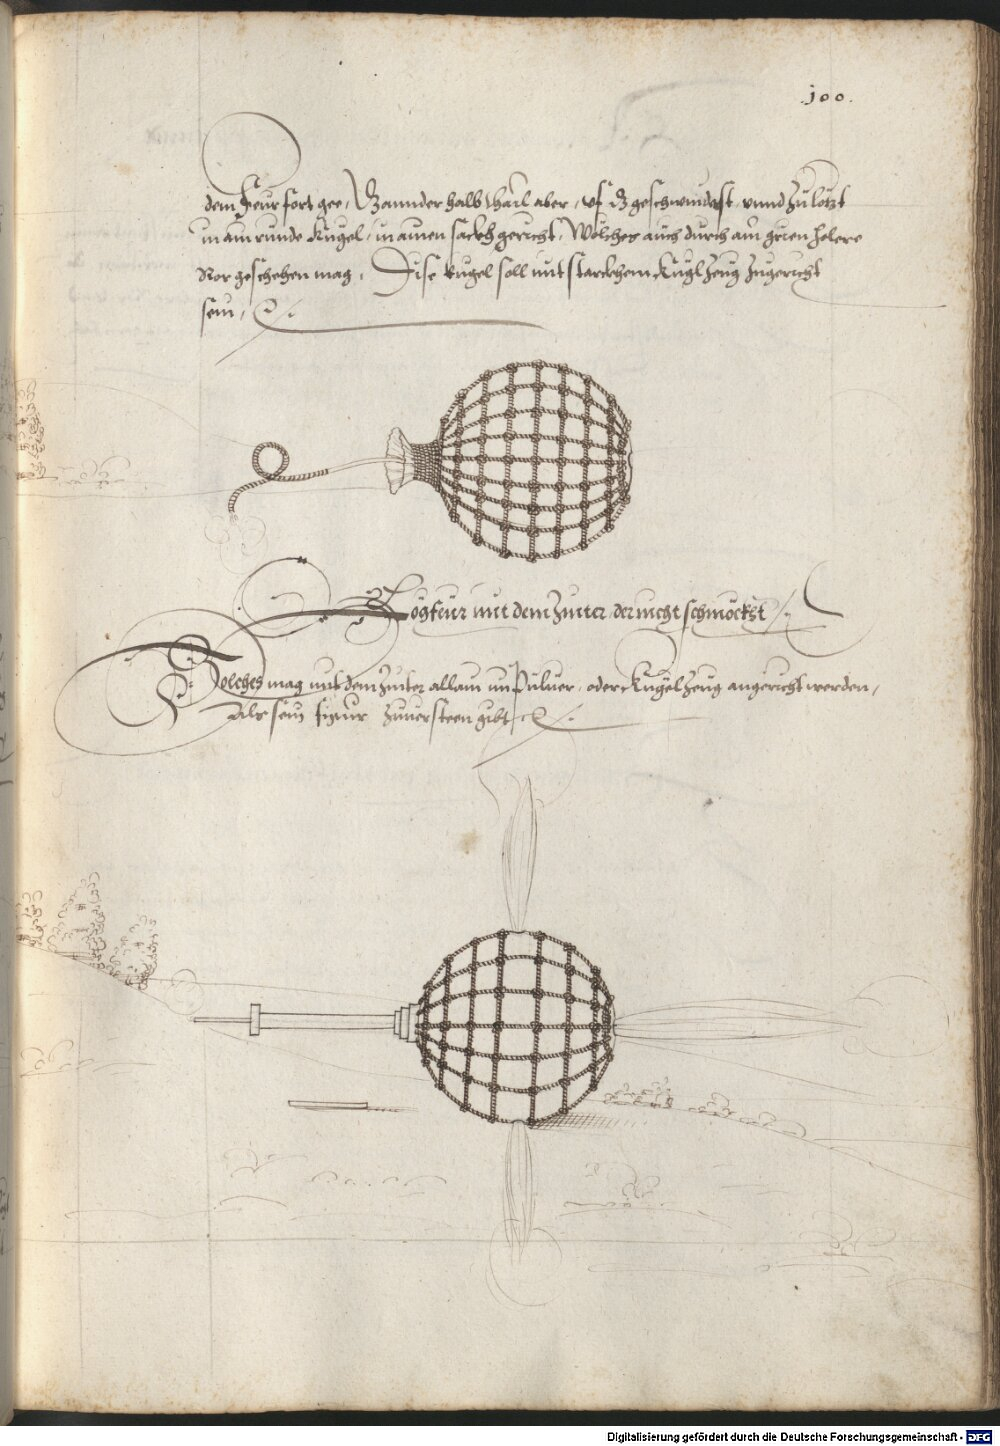 .100.
dem Feur fort gee, Wannder halb thail aber, uf dz geschwindest, unnd zu letzt
in ain runde Kugel, in ainen sackh gericht, Wölches auch durch ain
Ror geschehen mag. Dise kugel soll mit starckhem Kugl Zeug Zugericht
sein,
mit dem Zinter der nicht schmöckt
Solches mag mit dem Zinter allain im Puluer, oder Kugel Zeug angericht werden,
sein figur Zuuersteen gibt
Digitalisierung gefördert durch die Deutsche Forschungsgemeinschaft - DFG